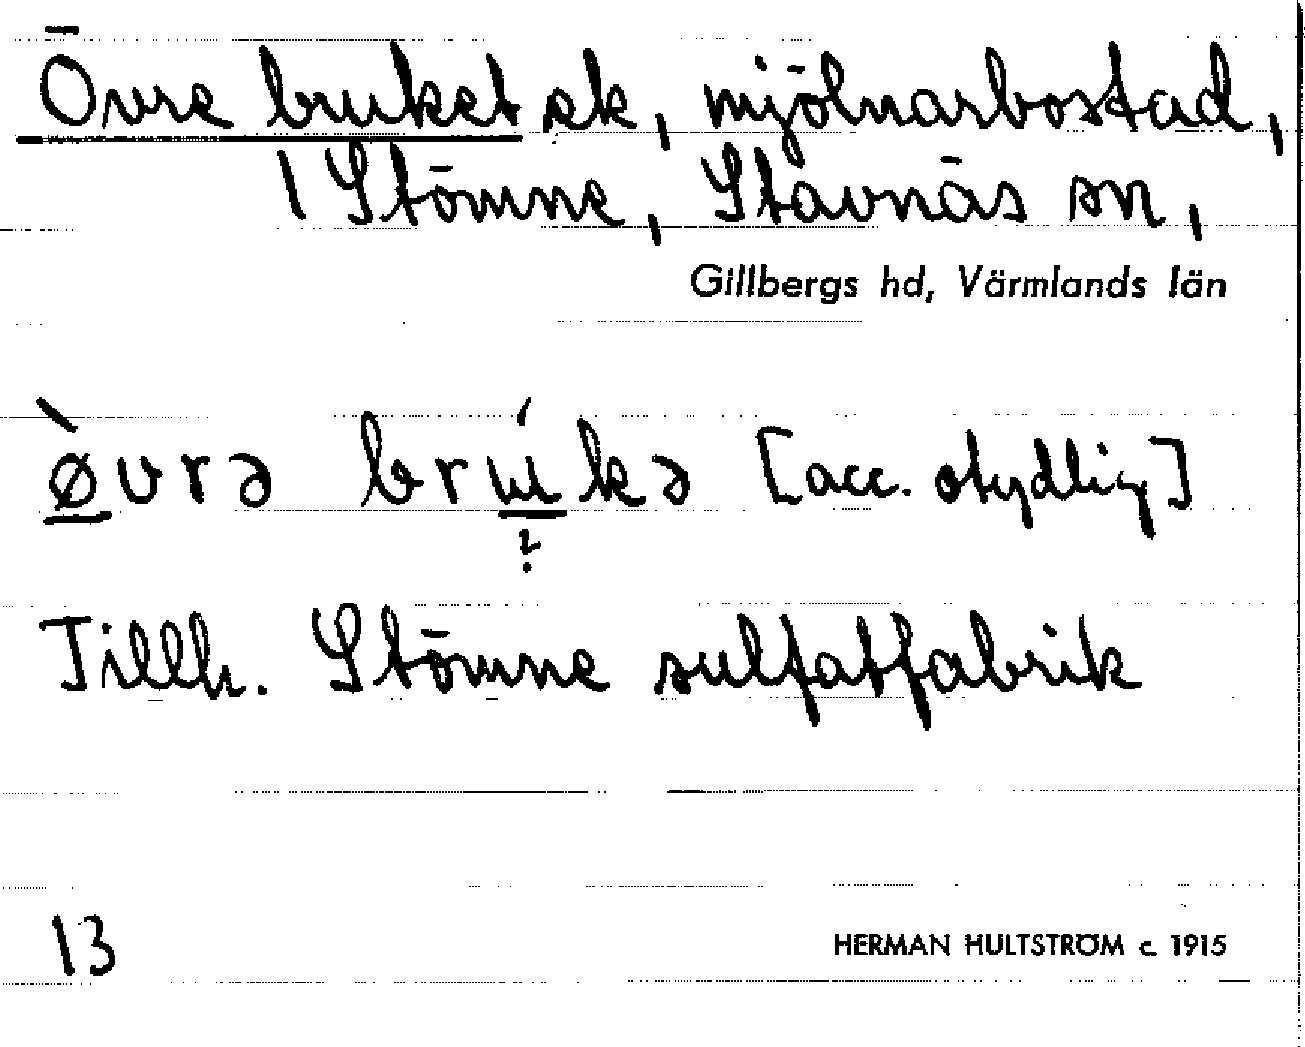 Övre bruket sk, mjölnarbostad,
1 Stömne, Stavnäs sn,
Gillbergs hd, Värmlands län
ø̀vrə brúkə [acc. otydlig]
?
Tillh. Stömne sulfatfabrik
13
HERMAN HULTSTRÖM c. 1915